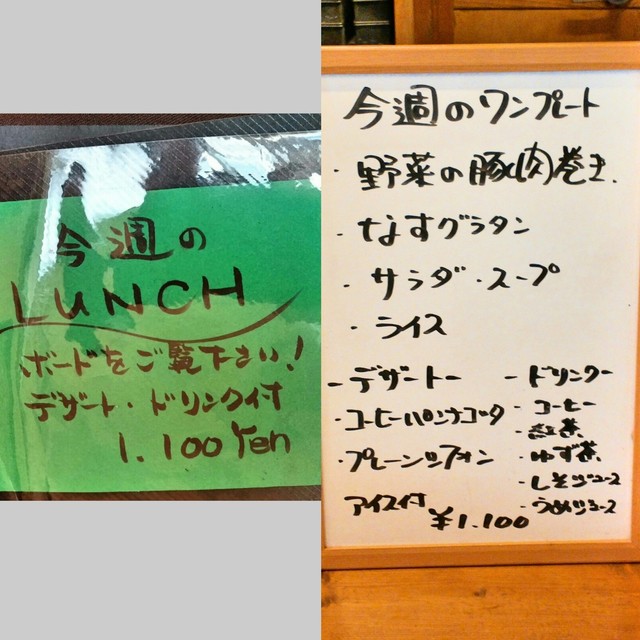 今週の
LUNCH
ボードをご覧下さい!
デザート・ドリンク付
1.100Yen
今週のワンプレート
・野菜の豚肉巻き
・なすグラタン
・サラダ・スープ
・ライス
-デザート-
・コーヒーパンナコッタ
・プレーンシフォン
アイス付
-ドリンク-
・コーヒー
・紅茶
・ゆず茶
・しそジュース
・うめジュース
¥1.100